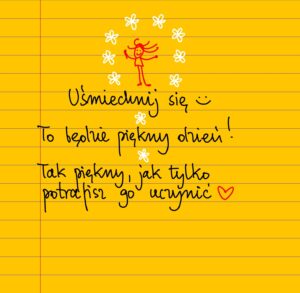 Uśmiechnij się
To będzie piękny dzień!
Tak piękny, jak tylko
potrafisz go uczynić